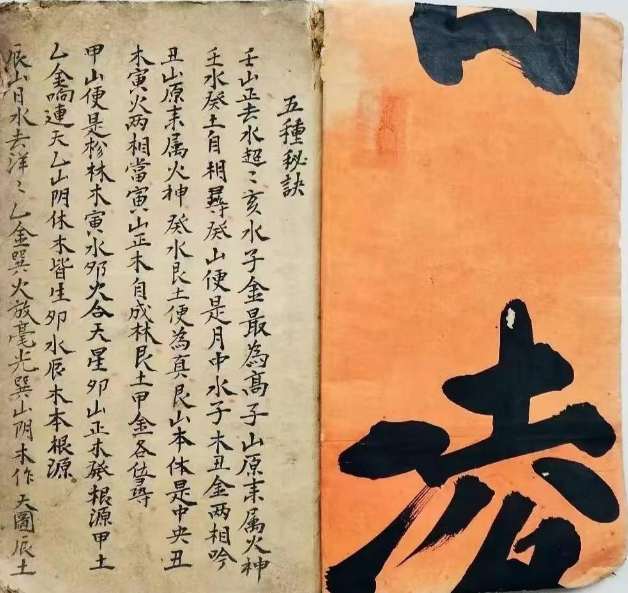 五種秘訣
壬山正去水超〻亥水子金最為髙子山原来属火神
壬水癸土自相尋癸山便是月中水子木丑金两相吟
丑山原来属火神癸水艮土便為真艮山本体是中央丑
木寅火两相當寅山正木自成林艮土甲金各尋
甲山便是松林木寅水夘火合天星夘山正木發根源甲土
乙金响連天乙山阴体木皆生夘水辰木本根源
辰山日水去洋〻乙金巽火放毫光巽山阴木作天圖辰土